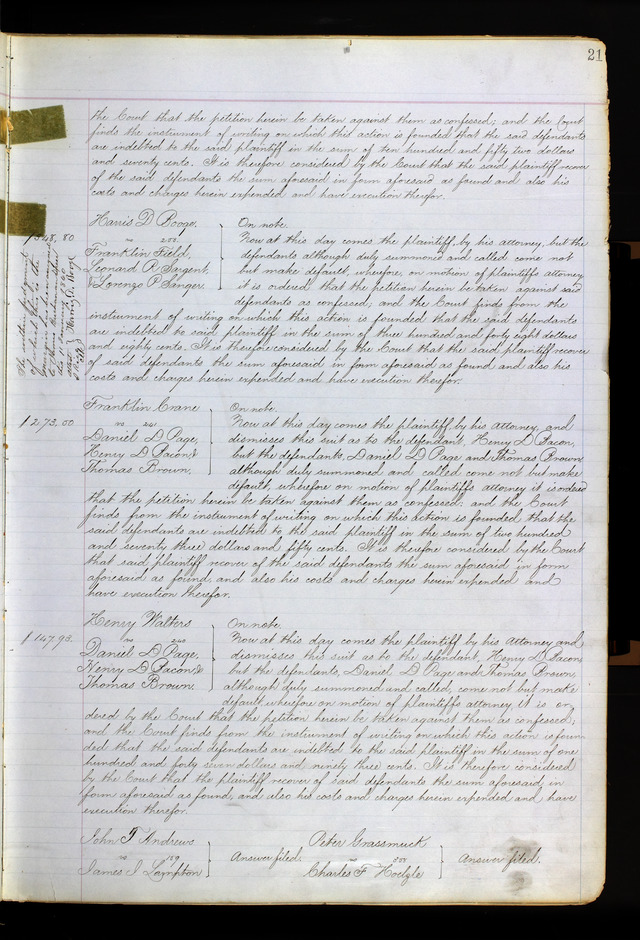 21
the Court that the petition herein be taken against them as confessed; and the Court
finds the instrument of writing on which this action is founded that the said defendants
are indebted to the said plaintiff in the sum of ten hundred and fifty two dollars
and seventy cents. It is therefore considered by the Court that the said plaintiff recover
of the said defendants the sum aforesaid in form aforesaid as found and also his
costs and charges herein expended and have execution therefor.
Harris D Booge.
Franklin Field,
Leonard R Sargent,
Lorenzo P Sanger.
$348.80
On note.
Now at this day comes the plaintiff, by his attorney, but the
defendants although duly summoned and called come not
but make default, wherefore, on motion of plaintiffs attorney
it is ordered that the petition herein be taken against said
defendants as confessed, and the Court finds from the
instrument of writing on which this action is founded that the said defendants
are indebted to said plaintiff in the sum of three hundred and forty eight dollars
and eighty cents. It is therefore considered by the Court that the said plaintiff recover
of said defendants the sum aforesaid in form aforesaid as found and also his
costs and charges herein expended and have execution therefor.
Franklin Crane
vs 241
Daniel D Page,
Henry D Bacon &
Thomas Brown.
$273.00
On note.
Now at this day comes the plaintiff by his attorney, and
dismisses this suit as to the defendant, Henry D Bacon,
but the defendants, Daniel D Page and Thomas Brown
although duly summoned and called come not but make
default, wherefore on motion of plaintiffs attorney it is ordered
that the petition herein be taken against them as confessed; and the Court
finds from the instrument of writing on which this action is founded that the
said defendants are indebted to the said plaintiff in the sum of two hundred
and seventy three dollars and fifty cents. It is therefore considered by the Court
that said plaintiff recover of the said defendants the sum aforesaid in form
aforesaid as found, and also his costs and charges herein expended and
have execution therefor.
Henry Walters
vs 240
Daniel D Page,
Henry D Bacon, &
Thomas Brown.
$147.93.
On note.
Now at this day comes the plaintiff by his Attorney and
dismisses this suit as to the defendant, Henry D Bacon,
but the defendants, Daniel D Page and Thomas Brown,
although duly summoned and called, come not but make
default wherefore on motion of plaintiffs attorney it is or
dered by the Court that the petition herein be taken against them as confessed;
and the Court finds from the instrument of writing on which this action is foun
ded that the said defendants are indebted to the said plaintiff in the sum of one
hundred and forty seven dollars and ninety three cents. It is therefore considered
by the Court that the plaintiff recover of said defendants the sum aforesaid in
form aforesaid as found, and also his costs and charges herein expended and have
execution therefor.
John T Andrews
vs 189
James I Lampton
Answer filed.
Peter Grassmuck
vs
Charles F Hoelzle
Answer filed.